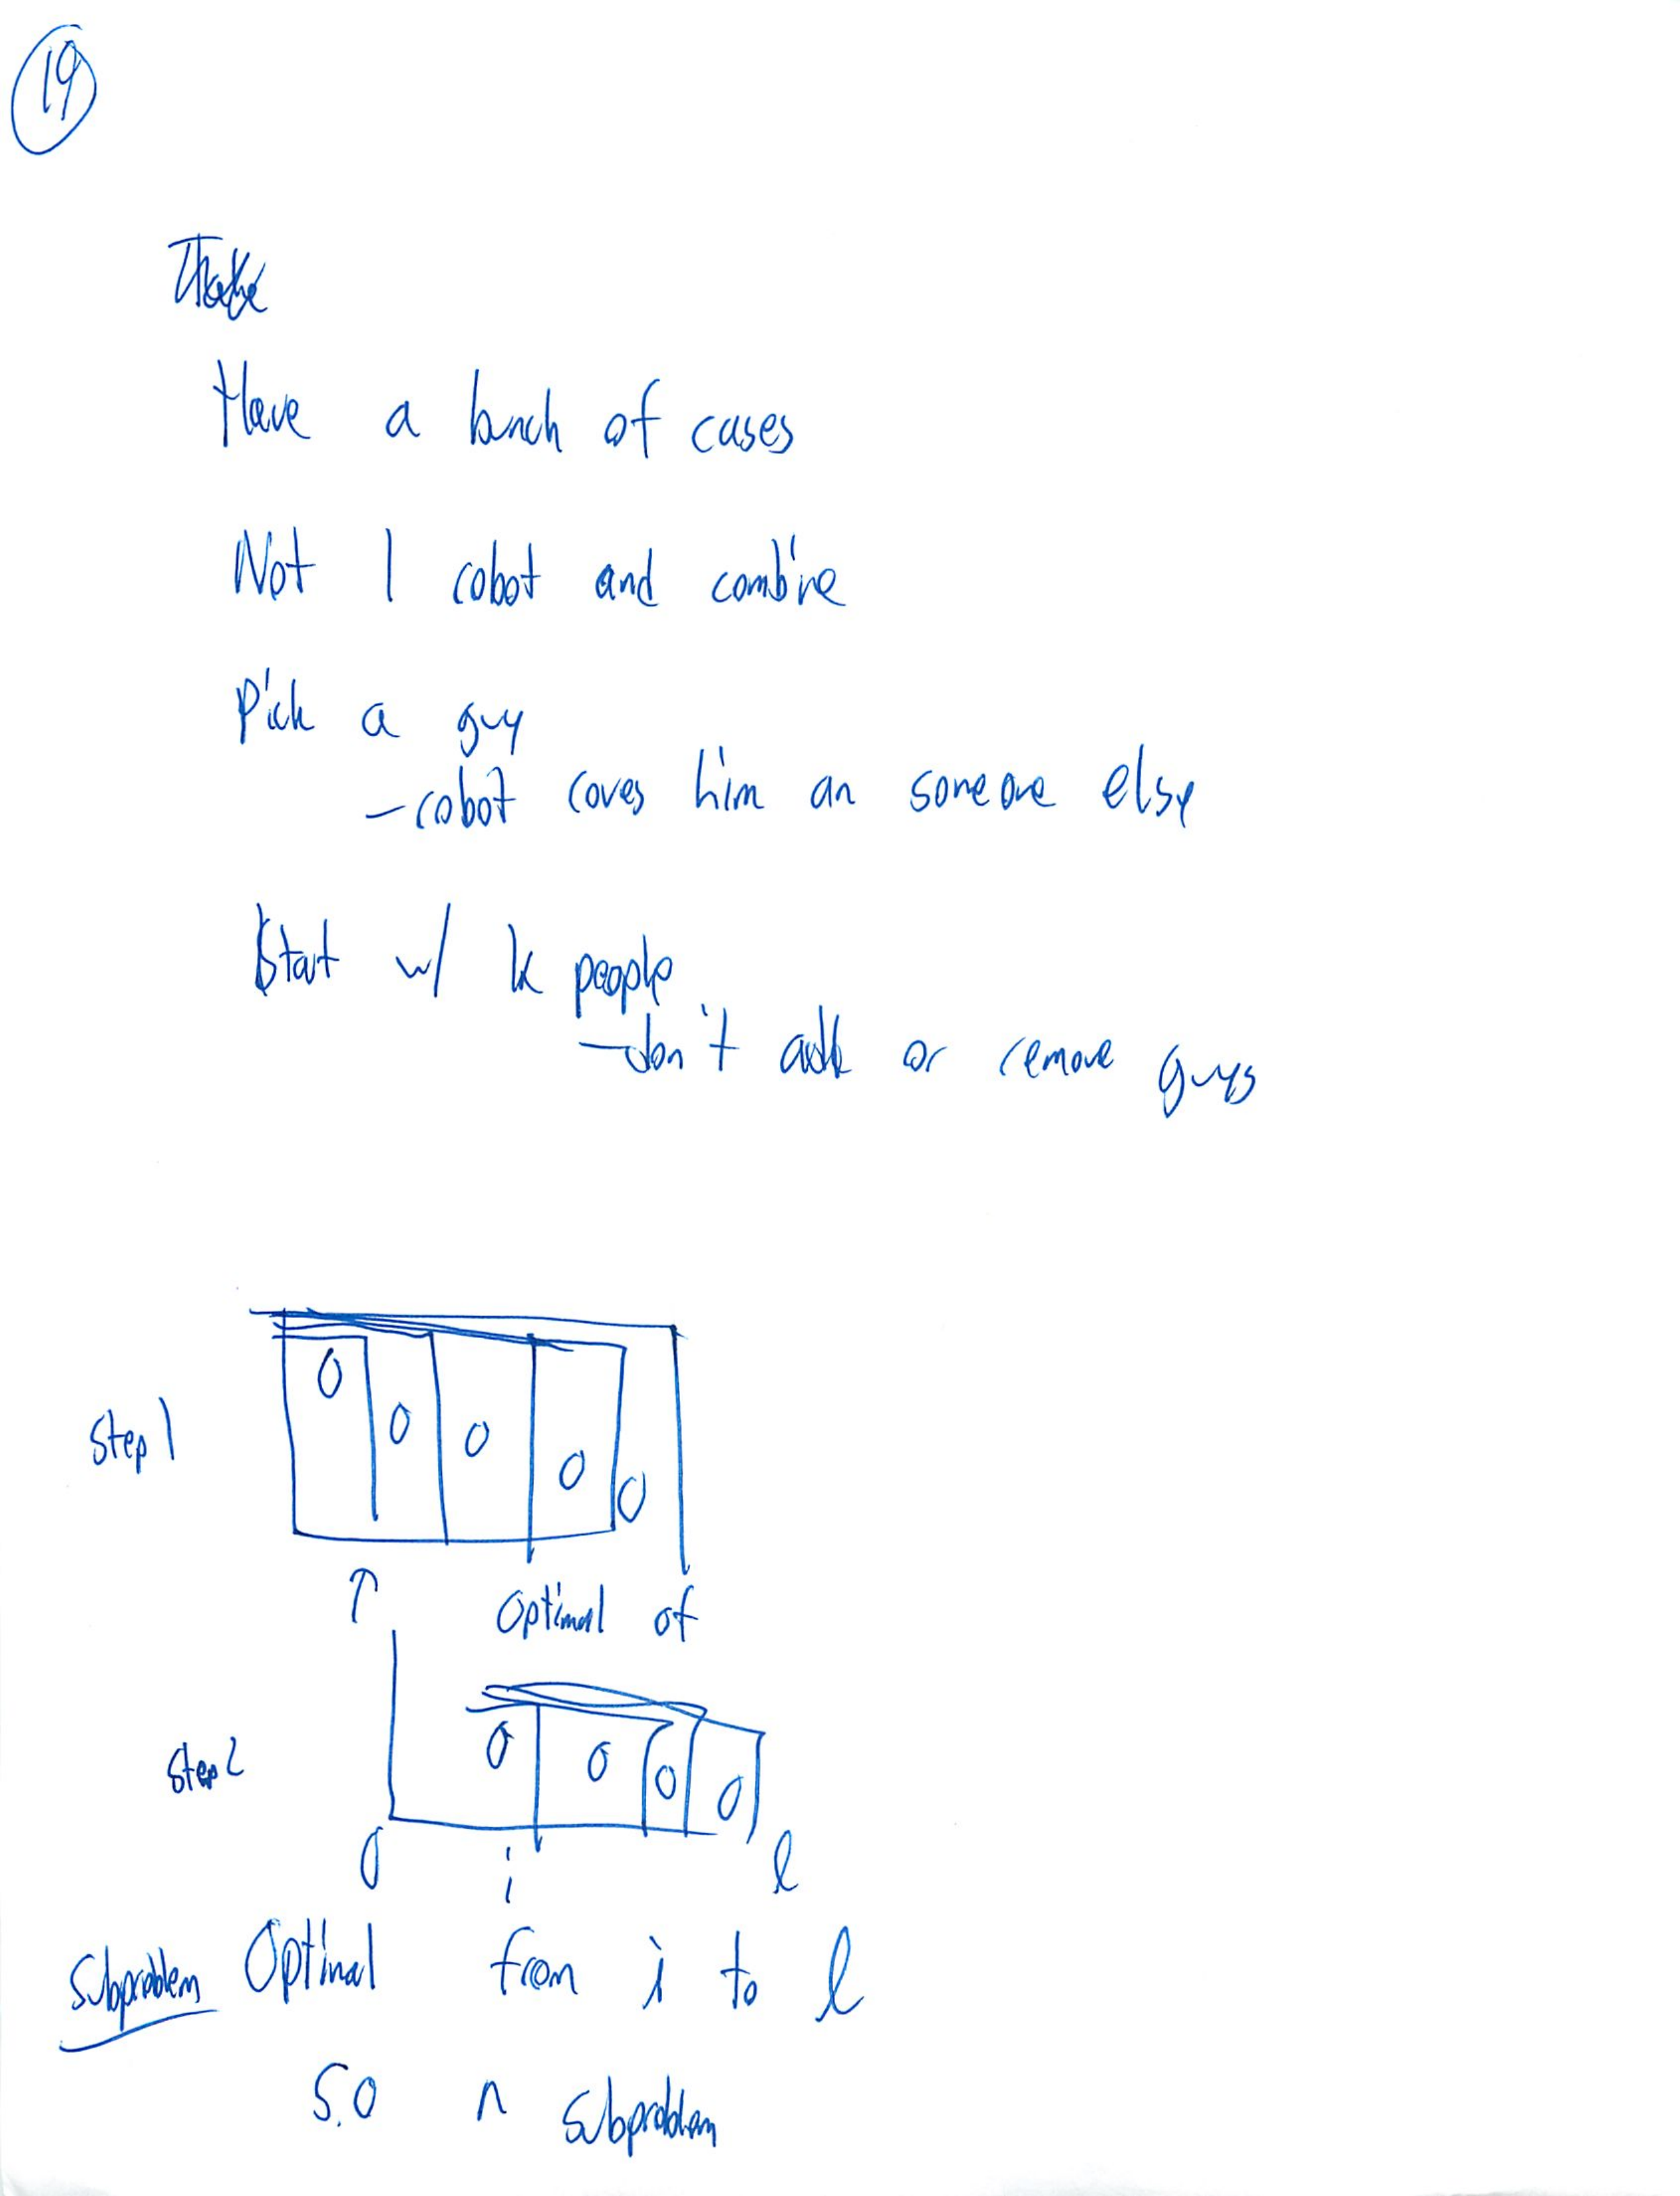 19
Have a bunch of cases
Not 1 robot and combine
Pick a guy
- robot coves him an someone else
Start w/ k people
- don't add or remove guys
Step 1
0 0 0 0 0
↑ Optimal of
Step 2
0 0 0 0
0 i l
Subproblem Optimal from i to l
S.O n subproblem